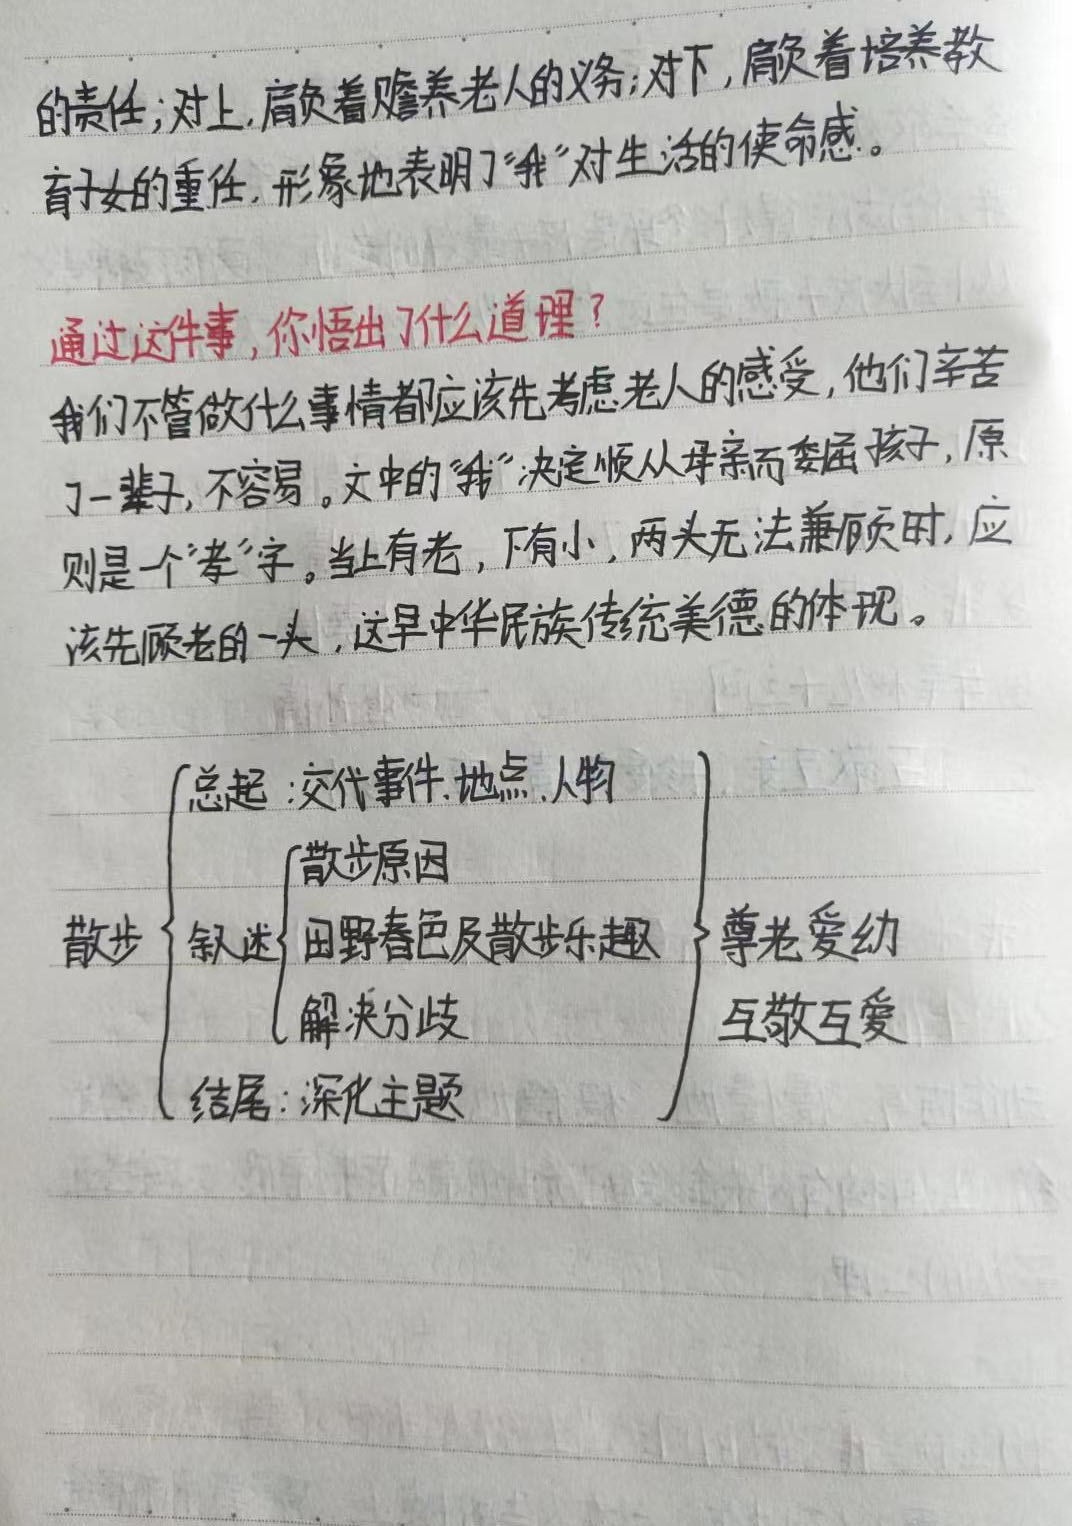 的责任;对上,肩负着赡养老人的义务;对下,肩负着培养教
育子女的重任,形象地表明了“我”对生活的使命感。
通过这件事,你悟出了什么道理?
我们不管做什么事情都应该先考虑老人的感受,他们辛苦
了一辈子,不容易。文中的“我”决定顺从母亲而委屈孩子,原
则是一个“孝”字。当上有老,下有小,两头无法兼顾时,应
该先顾老的一头,这早中华民族传统美德的体现。
总起:交代事件、地点、人物
散步原因
散步 叙述 田野春色及散步乐趣 尊老爱幼
解决分歧 互敬互爱
结尾:深化主题